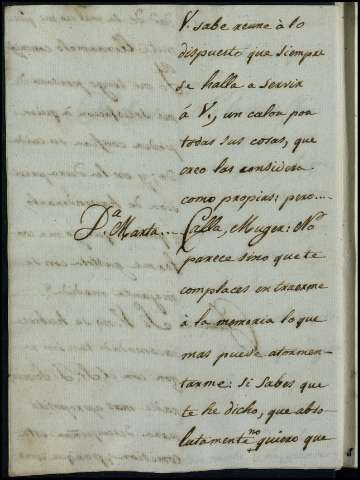 V. sabe reune à lo
dispuesto que siempre
se halla a servir
á V., un calor por
todas sus cosas, que
creo las considera
como propias: pero...
D.ª Marta... Calla, Muger: No
parece sino que te
complaces en traerme
à la memoria lo que
mas puede atormen-
tarme: si sabes que
te he dicho, que abso-
lutamente no quiero que